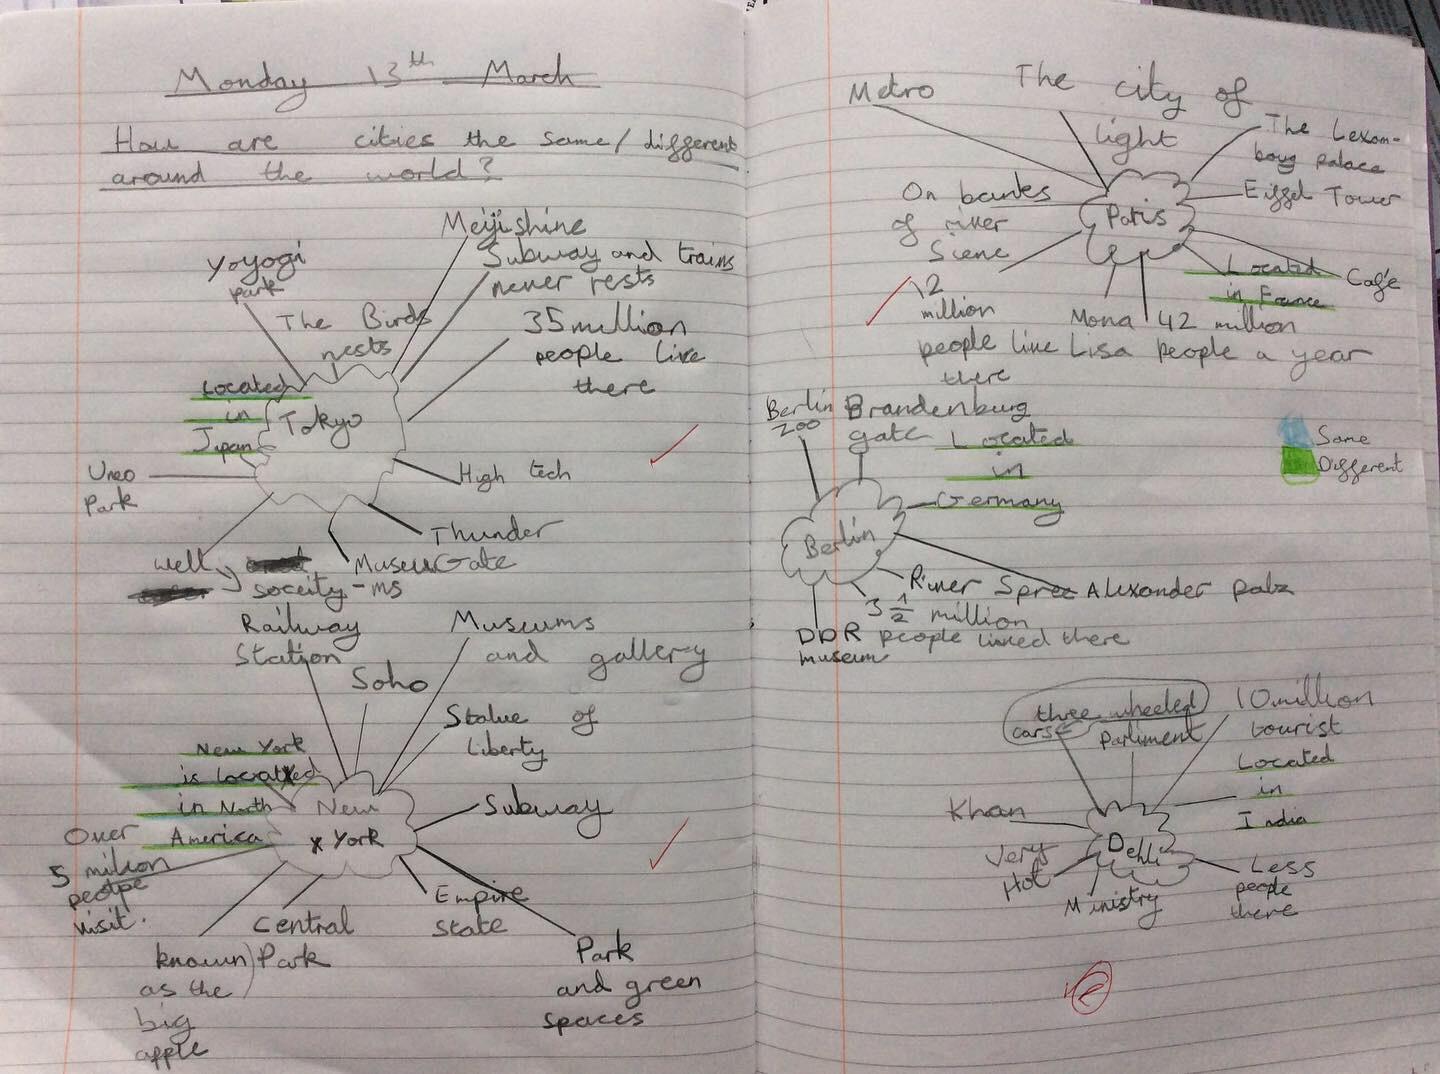 Monday 13th March
How are cities the same/different
around the world?
Meijishine
Yoyogi
park
Subway and trains
never rests
The Birds
nests
35 million
people live
there
Located
in
Japan
Tokyo
Uneo
Park
High tech
Thunder
MuseuGate
well
soceity-ms
Railway
Station
Museums
and gallery
Soho
Statue of
liberty
New York
is located
in North
America
New
York
Subway
Over
5 million
peotpe
visit.
Empire
state
Central
Park
known
as the
big
apple
Park
and green
spaces
Metro
The city of
light
The Lexom-
boug palace
Eiffel Tower
On banks
of river
Siene
Paris
Located
in France
Café
12
million
people live
there
Mona
Lisa
42 million
people a year
Berlin
200
Brandenburg
gate
Located
in
Germany
Same
Different
Berlin
River Spree
Alexander palz
3 1/2 million
people lived there
DDR
museum
three wheeled
cars
parliment
10 million
tourist
Located
in
India
Khan
Dehli
Very
Hot
Ministry
Less
people
there